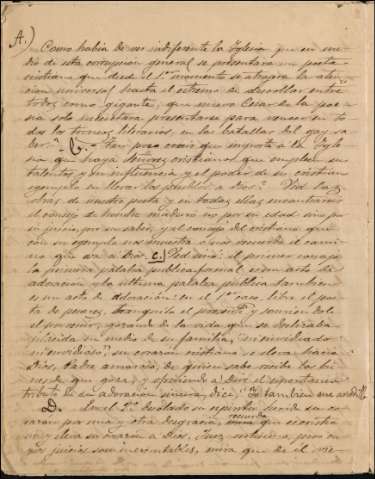 A.)
Como habia de ser indiferente la Iglesia que en me
dio de esta corrupcion general se presentara un poeta
cristiano que desde el 1er momento se atrajera la aten
cion universal hasta el extremo de descollar entre
todos como gigante, que nuevo Cesar de la poe
sia solo necesitara presentarse para vencer en to
dos los torneos literarios, en las batallas del gay sa
ber? B. - tan poco creeis que importa a la Igle
sia que haya Señores cristianos que emplean su
talento, y su influencia y el poder de su cristiano
ejemplo en llevar los pueblos a Dios? Ved las
obras de nuestro poeta y en todas ellas encontrareis
el consejo de hombre maduro no por su edad sino por
su juicio, por su saber, y al consejo del cristiano que
con su ejemplo nos muestra o nos recuerda el cami
no que va a Dios. C. Ved sino: el primer consejo
la primera palabra publica formal, es un acto de
adoracion y la ultima palabra publica tambien
es un acto de adoracion: en el 1er caso, libre el poe
ta de pesares, tranquilo el presente y sonriendole
el porvenir, gozando de la vida que se deslizaba
placida en medio de su familia, "ni envidiado
ni envidioso" su corazon cristiano se eleva hacia
Dios, Padre amoroso, de quien sabe recibe los bie
nes de que goza, y ofreciendo a Dios el espontaneo
tributo de su adoracion sincera, dice: "Yo tambien me arrodillo
D. En el 2º
una y otra desgracia, recuerda que es cristia
no y eleva su oracion a Dios, Juez
yos juicios son inexorables, mira que de el vie-